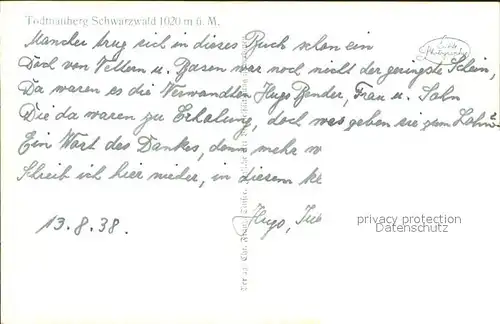 Todtnauberg Schwarzwald 1020 m ü. M.
Echte Photographie
Mancher trug sich in dieses Buch schon ein
Doch von Vettern u. Basen war noch nicht der geringste Schein,
Da waren es die Verwandten Hugo Bender, Frau u. Sohn
Die da waren zu Erholung, doch was geben sie zum Lohn
Ein Wort des Dankes, denn mehr
Schreib ich hier nieder, in diesem
13.8.38.
Hugo,
privacy protection
Datenschutz